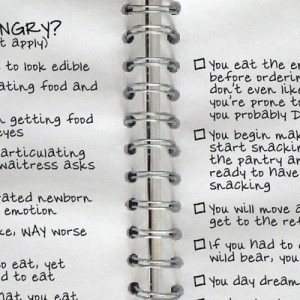 NGRY?
t apply)
to look edible
ating food and
n getting food
eyes
articulating
waitress asks
rated newborn
emotion
ke, WAY worse
o eat, yet
d to eat
hat you eat
You eat the en
before orderin
don't even like
you're prone t
you probably D
You begin mak
start snackin
the pantry an
ready to have
snacking
You will move a
get to the ref
If you had to
wild bear, you
You day dream